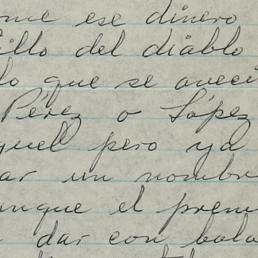 ome ese dinero
illo del diablo
lo que se aveci
Pérez o López
quel pero ya
ar un nombre
unque el prem
dar con bala